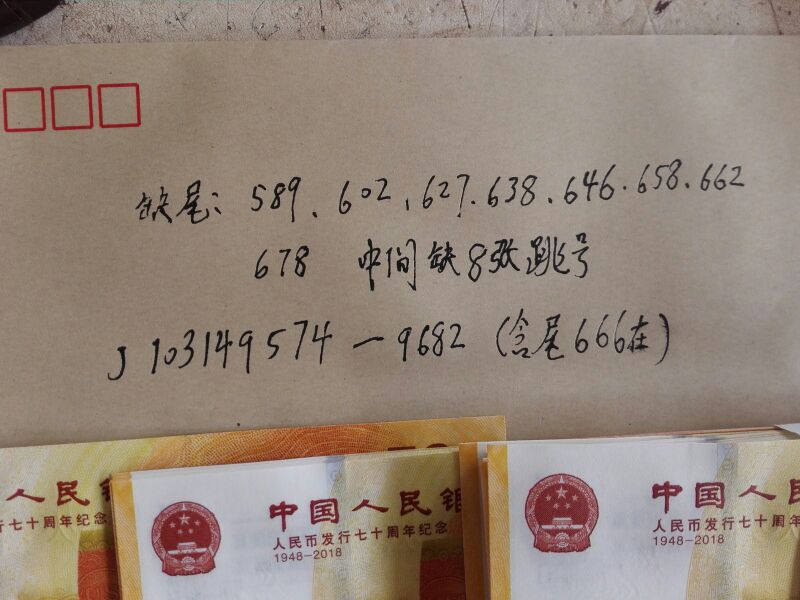 缺尾: 589、602、627.638.646.658.662
678 中间缺8张跳号
J103149574一9682 (含尾666在)
50
中国人民银
行七十周年纪念
中国人民银
人民币发行七十周年纪念
1948-2018
中国人民
人民币发行七十周年
1948-2018